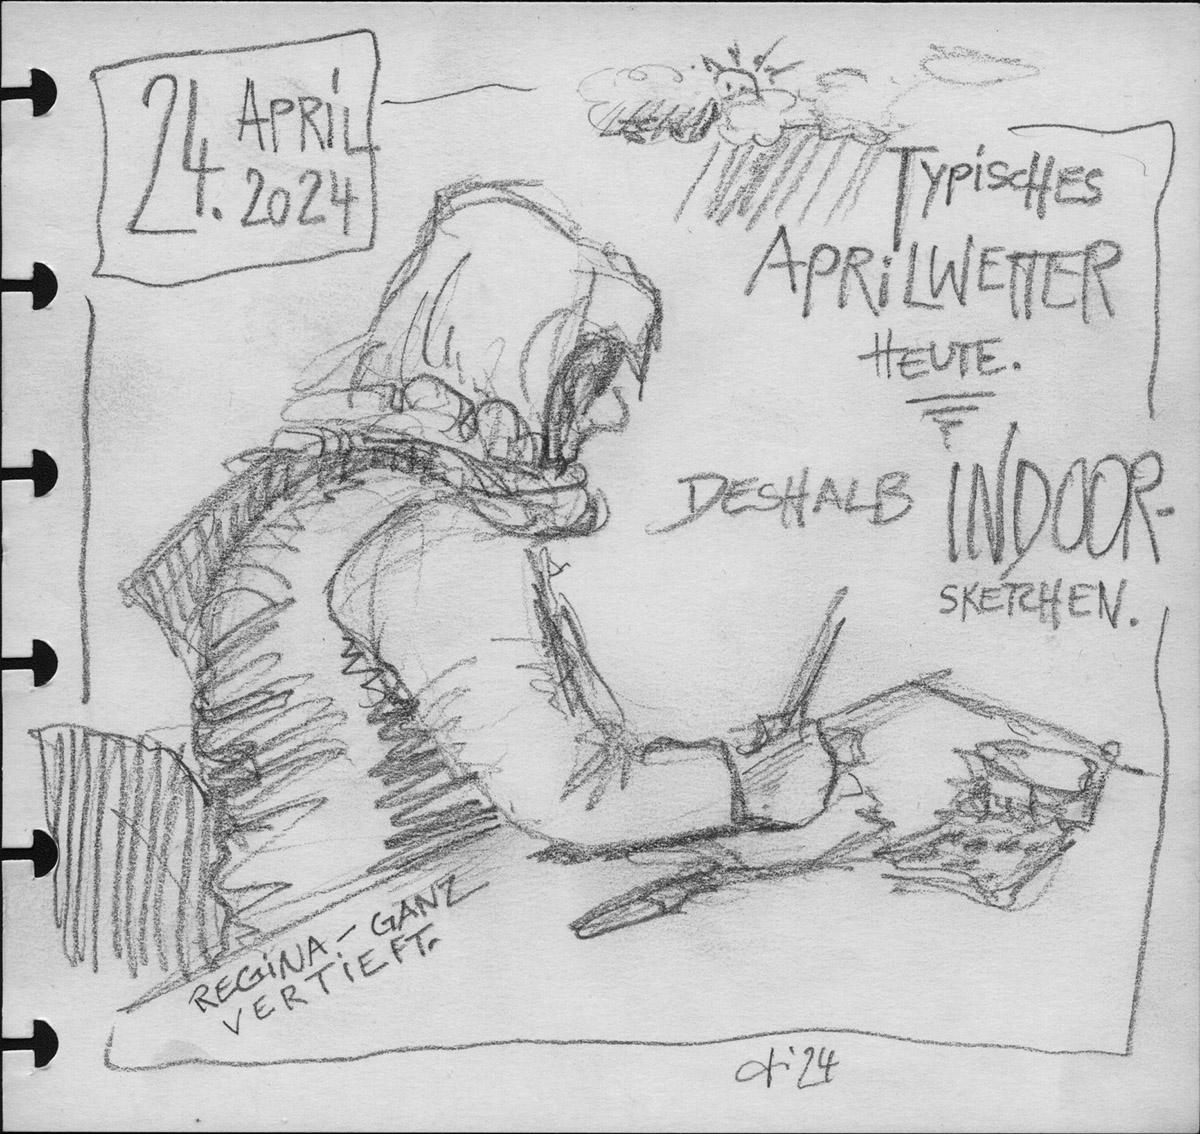 24. APRIL
2024
TYPISCHES
APRILWETTER
HEUTE.
DESHALB INDOOR-
SKETCHEN.
REGINA.- GANZ
VERTIEFT.
24